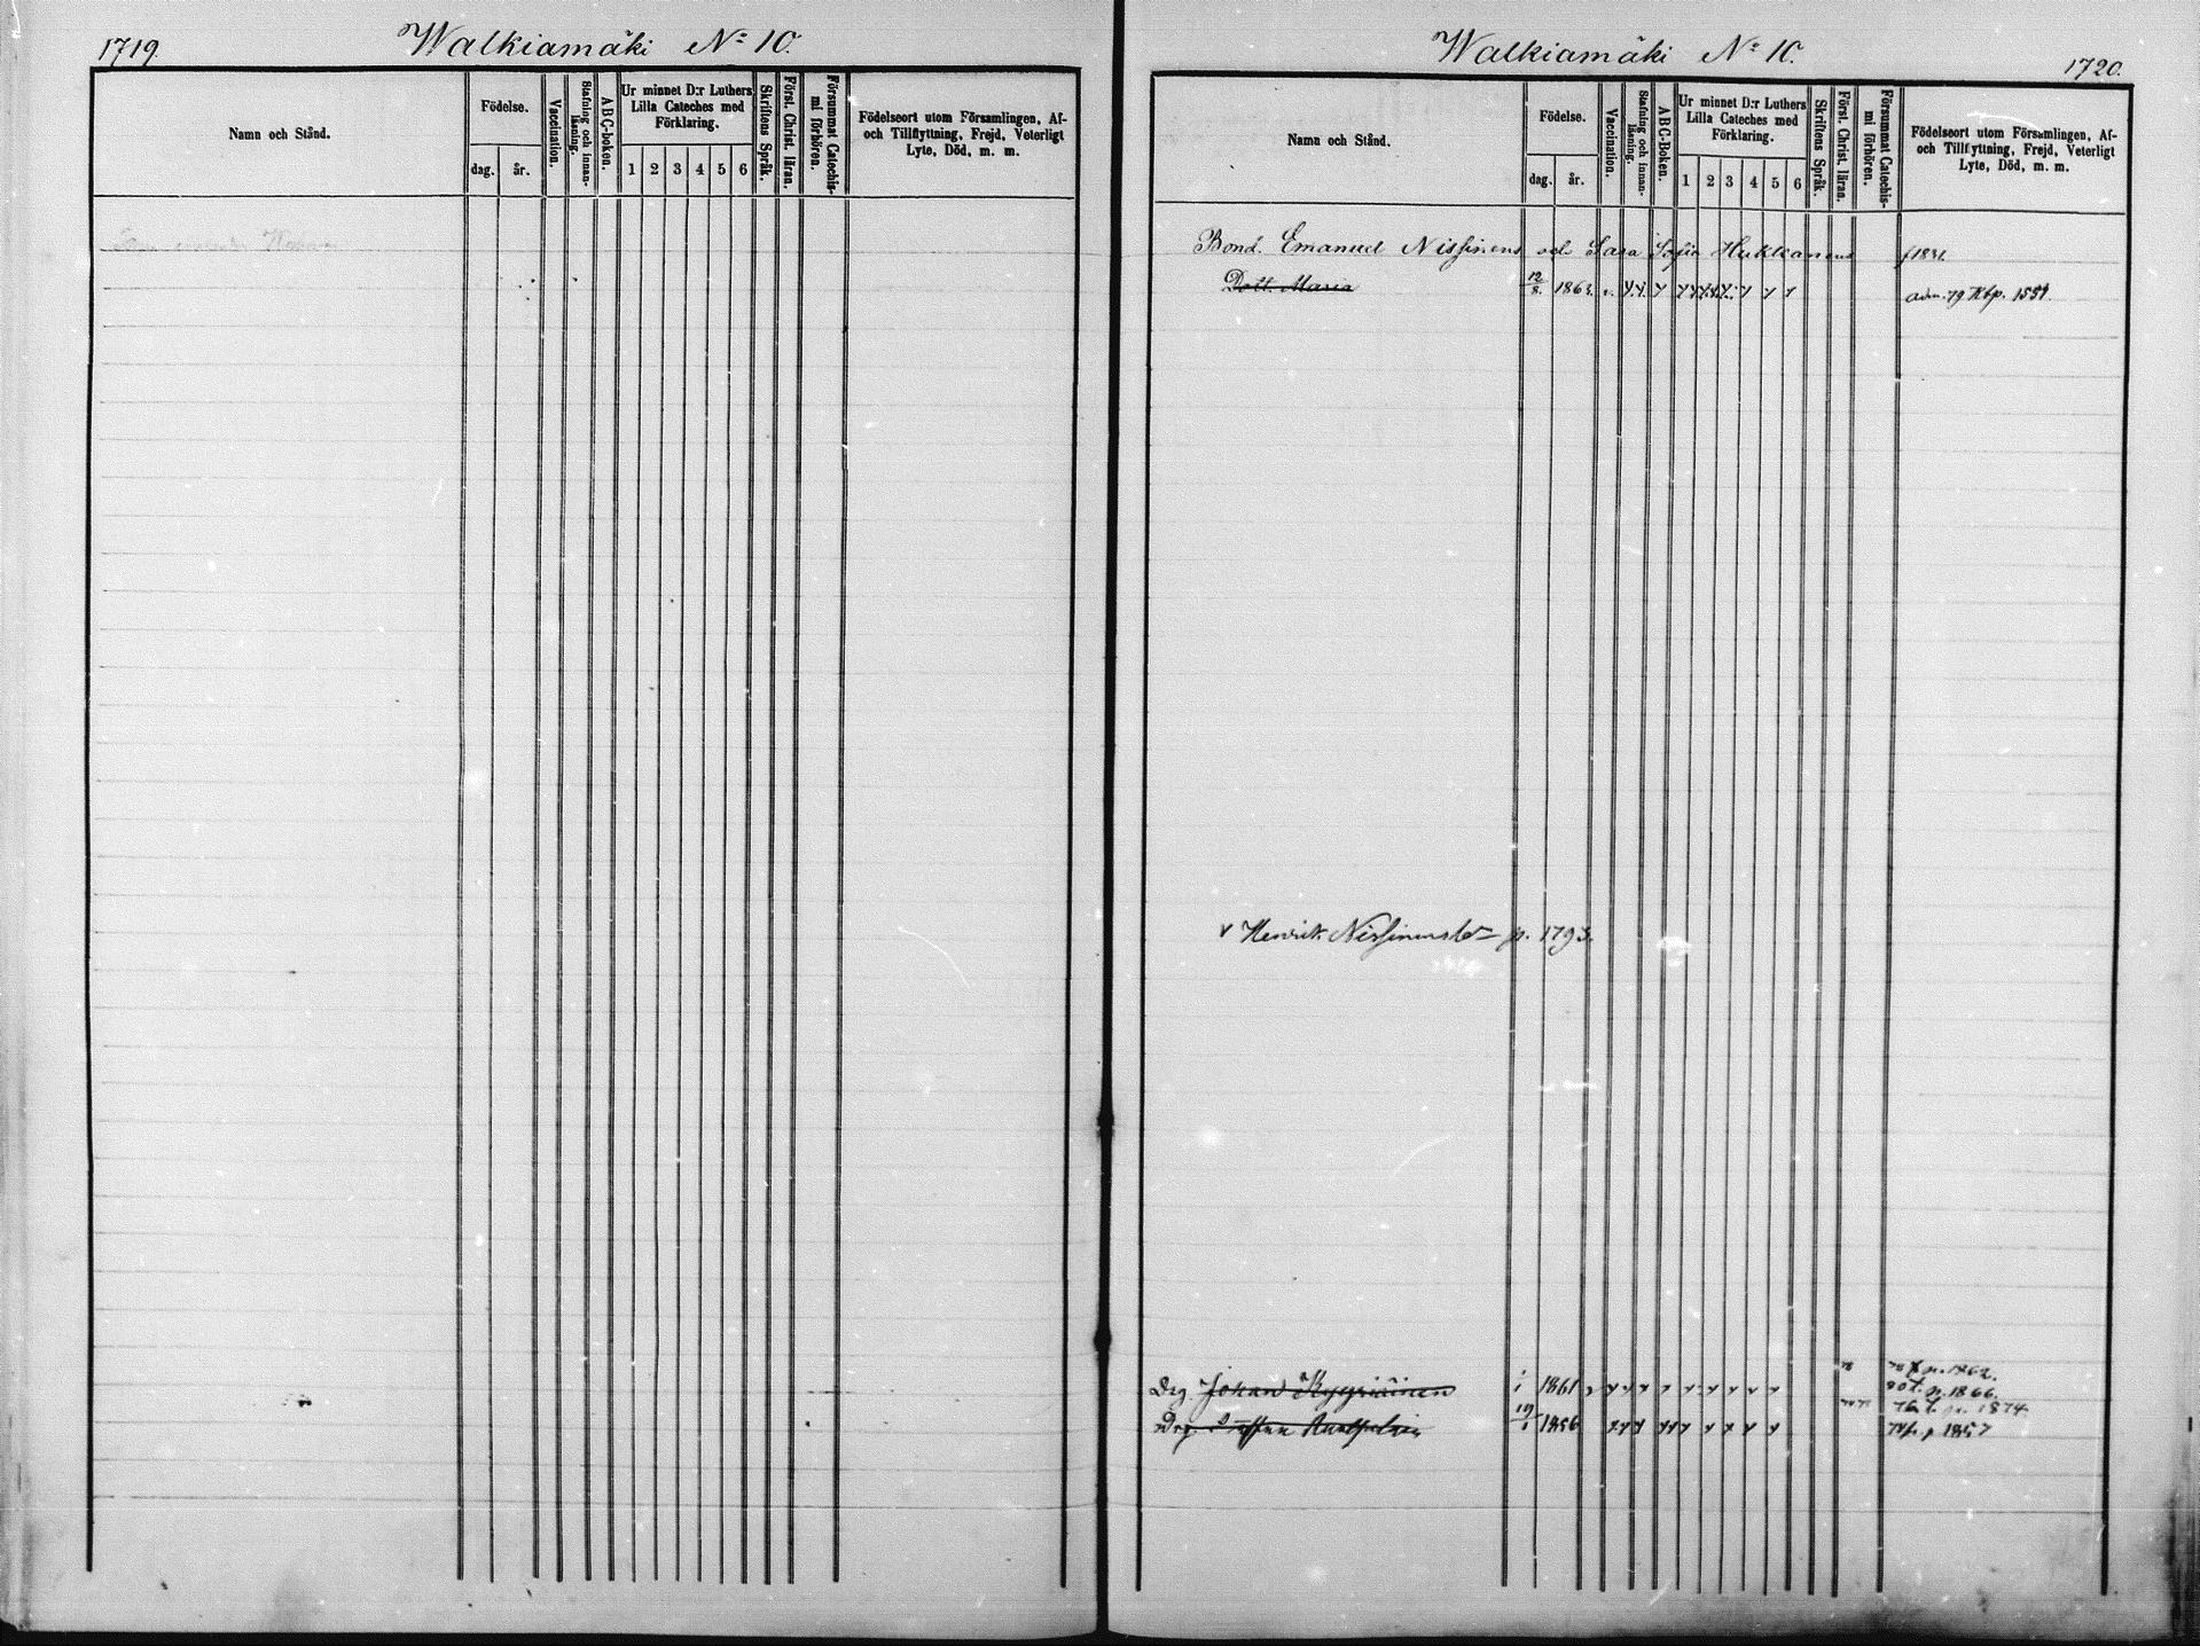 1719.
Walkiamäki No 10.
Namn och Stånd.
Födelse.
dag.
år.
Vaccination.
Stafning och innan-
läsning.
ABC-boken.
Ur minnet D:r Luthers
Lilla Cateches med
Förklaring.
1 2 3 4 5 6
Skriftens Språk.
Först. Christ. läran.
Försummat Catechis-
mi förhören.
Födelseort utom Församlingen, Af-
och Tillflyttning, Frejd, Veterligt
Lyte, Död, m. m.
Walkiamäki No 10.
1720.
Namn och Stånd.
Födelse.
dag.
år.
Vaccination.
Stafning och innan-
läsning.
ABC-Boken.
Ur minnet D:r Luthers
Lilla Cateches med
Förklaring.
1 2 3 4 5 6
Skriftens Språk.
Först. Christ. läran.
Försummat Catechis-
mi förhören.
Födelseort utom Församlingen, Af-
och Tillflyttning, Frejd, Veterligt
Lyte, Död, m. m.
Bond. Emanuel Nissinens och Sara Sofia Hukkanens f 1831.
Dott. Maria 12/8. 1863. v. adm. 79 Kbp. 1551.
v Henrik p. 1793.
Drg Johan 1861 78
p. 1866.
p. 1874.
Drg 1856 1857